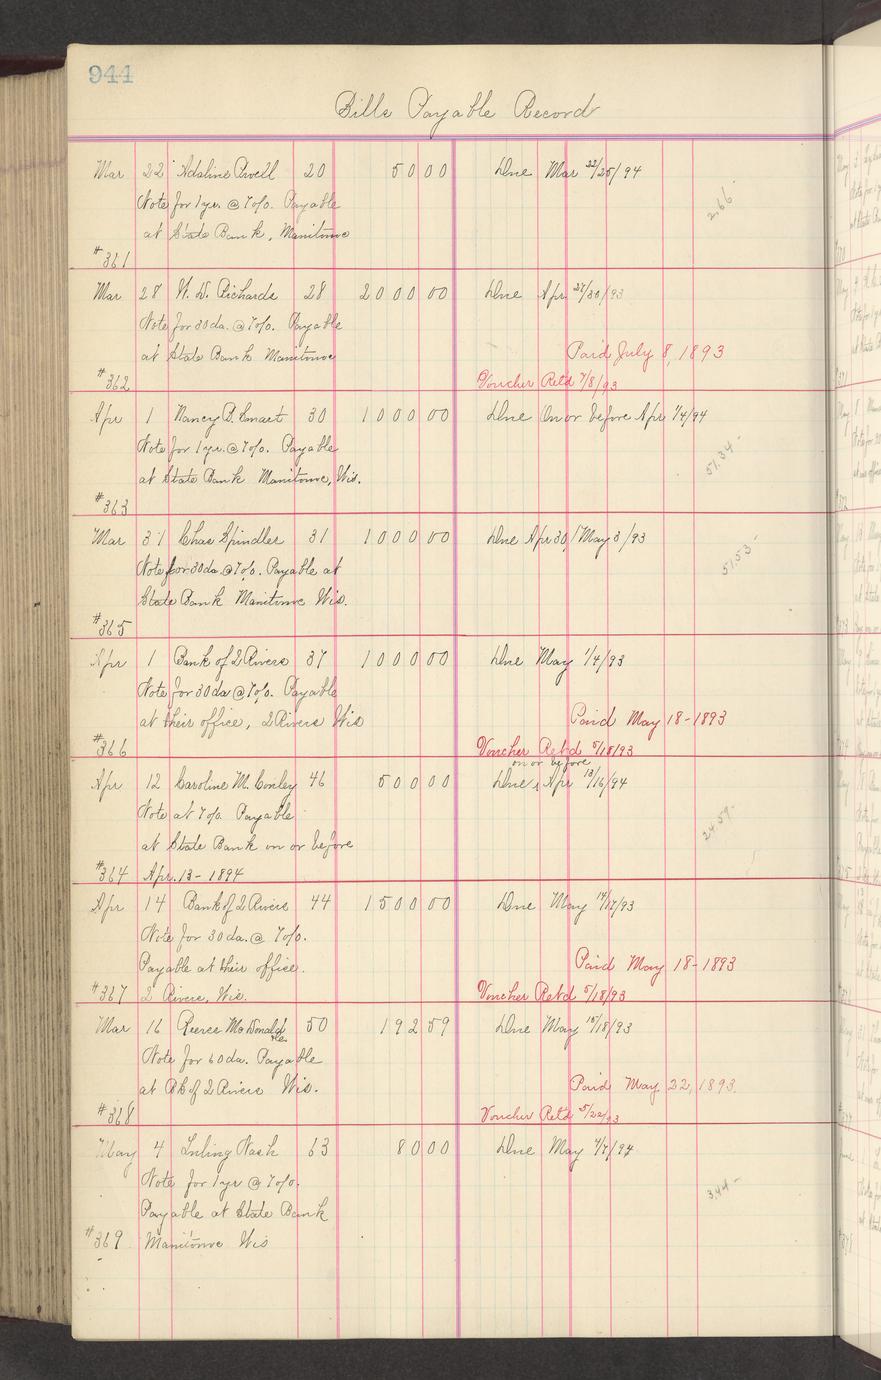 944
Bills Payable Record
Mar 22 Adaline Powell 20 50 00 Due Mar 22/25/94
Note for 1 yr. @ 7%. Payable
at State Bank, Manitowoc
2.66 -
#361
Mar 28 W. D. Richards 28 2000 00 Due Apr 27/30/93
Note for 30 da. @ 7%. Payable
at State Bank Manitowoc Paid July 8, 1893
#362 Voucher Retd 7/8/93
Apr 1 Nancy B. Smart 30 1000 00 Due On or before Apr 1/4/94
Note for 1 yr. @ 7%. Payable
at State Bank Manitowoc, Wis.
51.34 -
#363
Mar 31 Chas Spindler 31 1000 00 Due Apr 30/May 3/93
Note for 30 da. @ 7%. Payable at
51.53 -
State Bank Manitowoc Wis.
#365
Apr 1 Bank of 2 Rivers 37 1000 00 Due May 1/4/93
Note for 30 da @ 7%. Payable
at their office, 2 Rivers Wis Paid May 18-1893
#366 Voucher Retd 5/18/93
on or before
Apr 12 Caroline M. Conley 46 500 00 Due Apr 13/16/94
Note at 7%. Payable
24.59 -
at State Bank on or before
#364 Apr. 13 - 1894
Apr 14 Bank of 2 Rivers 44 1500 00 Due May 14/17/93
Note for 30 da. @ 7%.
Payable at their office. Paid May 18-1893
#367 2 Rivers, Wis. Voucher Retd 5/18/93
Mar 16 Reerce McDonald 50 192 59 Due May 15/18/93
Note for 60 da. Payable
at Bk of 2 Rivers Wis. Paid May 22, 1893
#368 Voucher Retd 5/22/93
May 4 Nash 63 80 00 Due May 4/7/94
Note for 1 yr @ 7%.
3.44 -
Payable at State Bank
#369 Manitowoc Wis